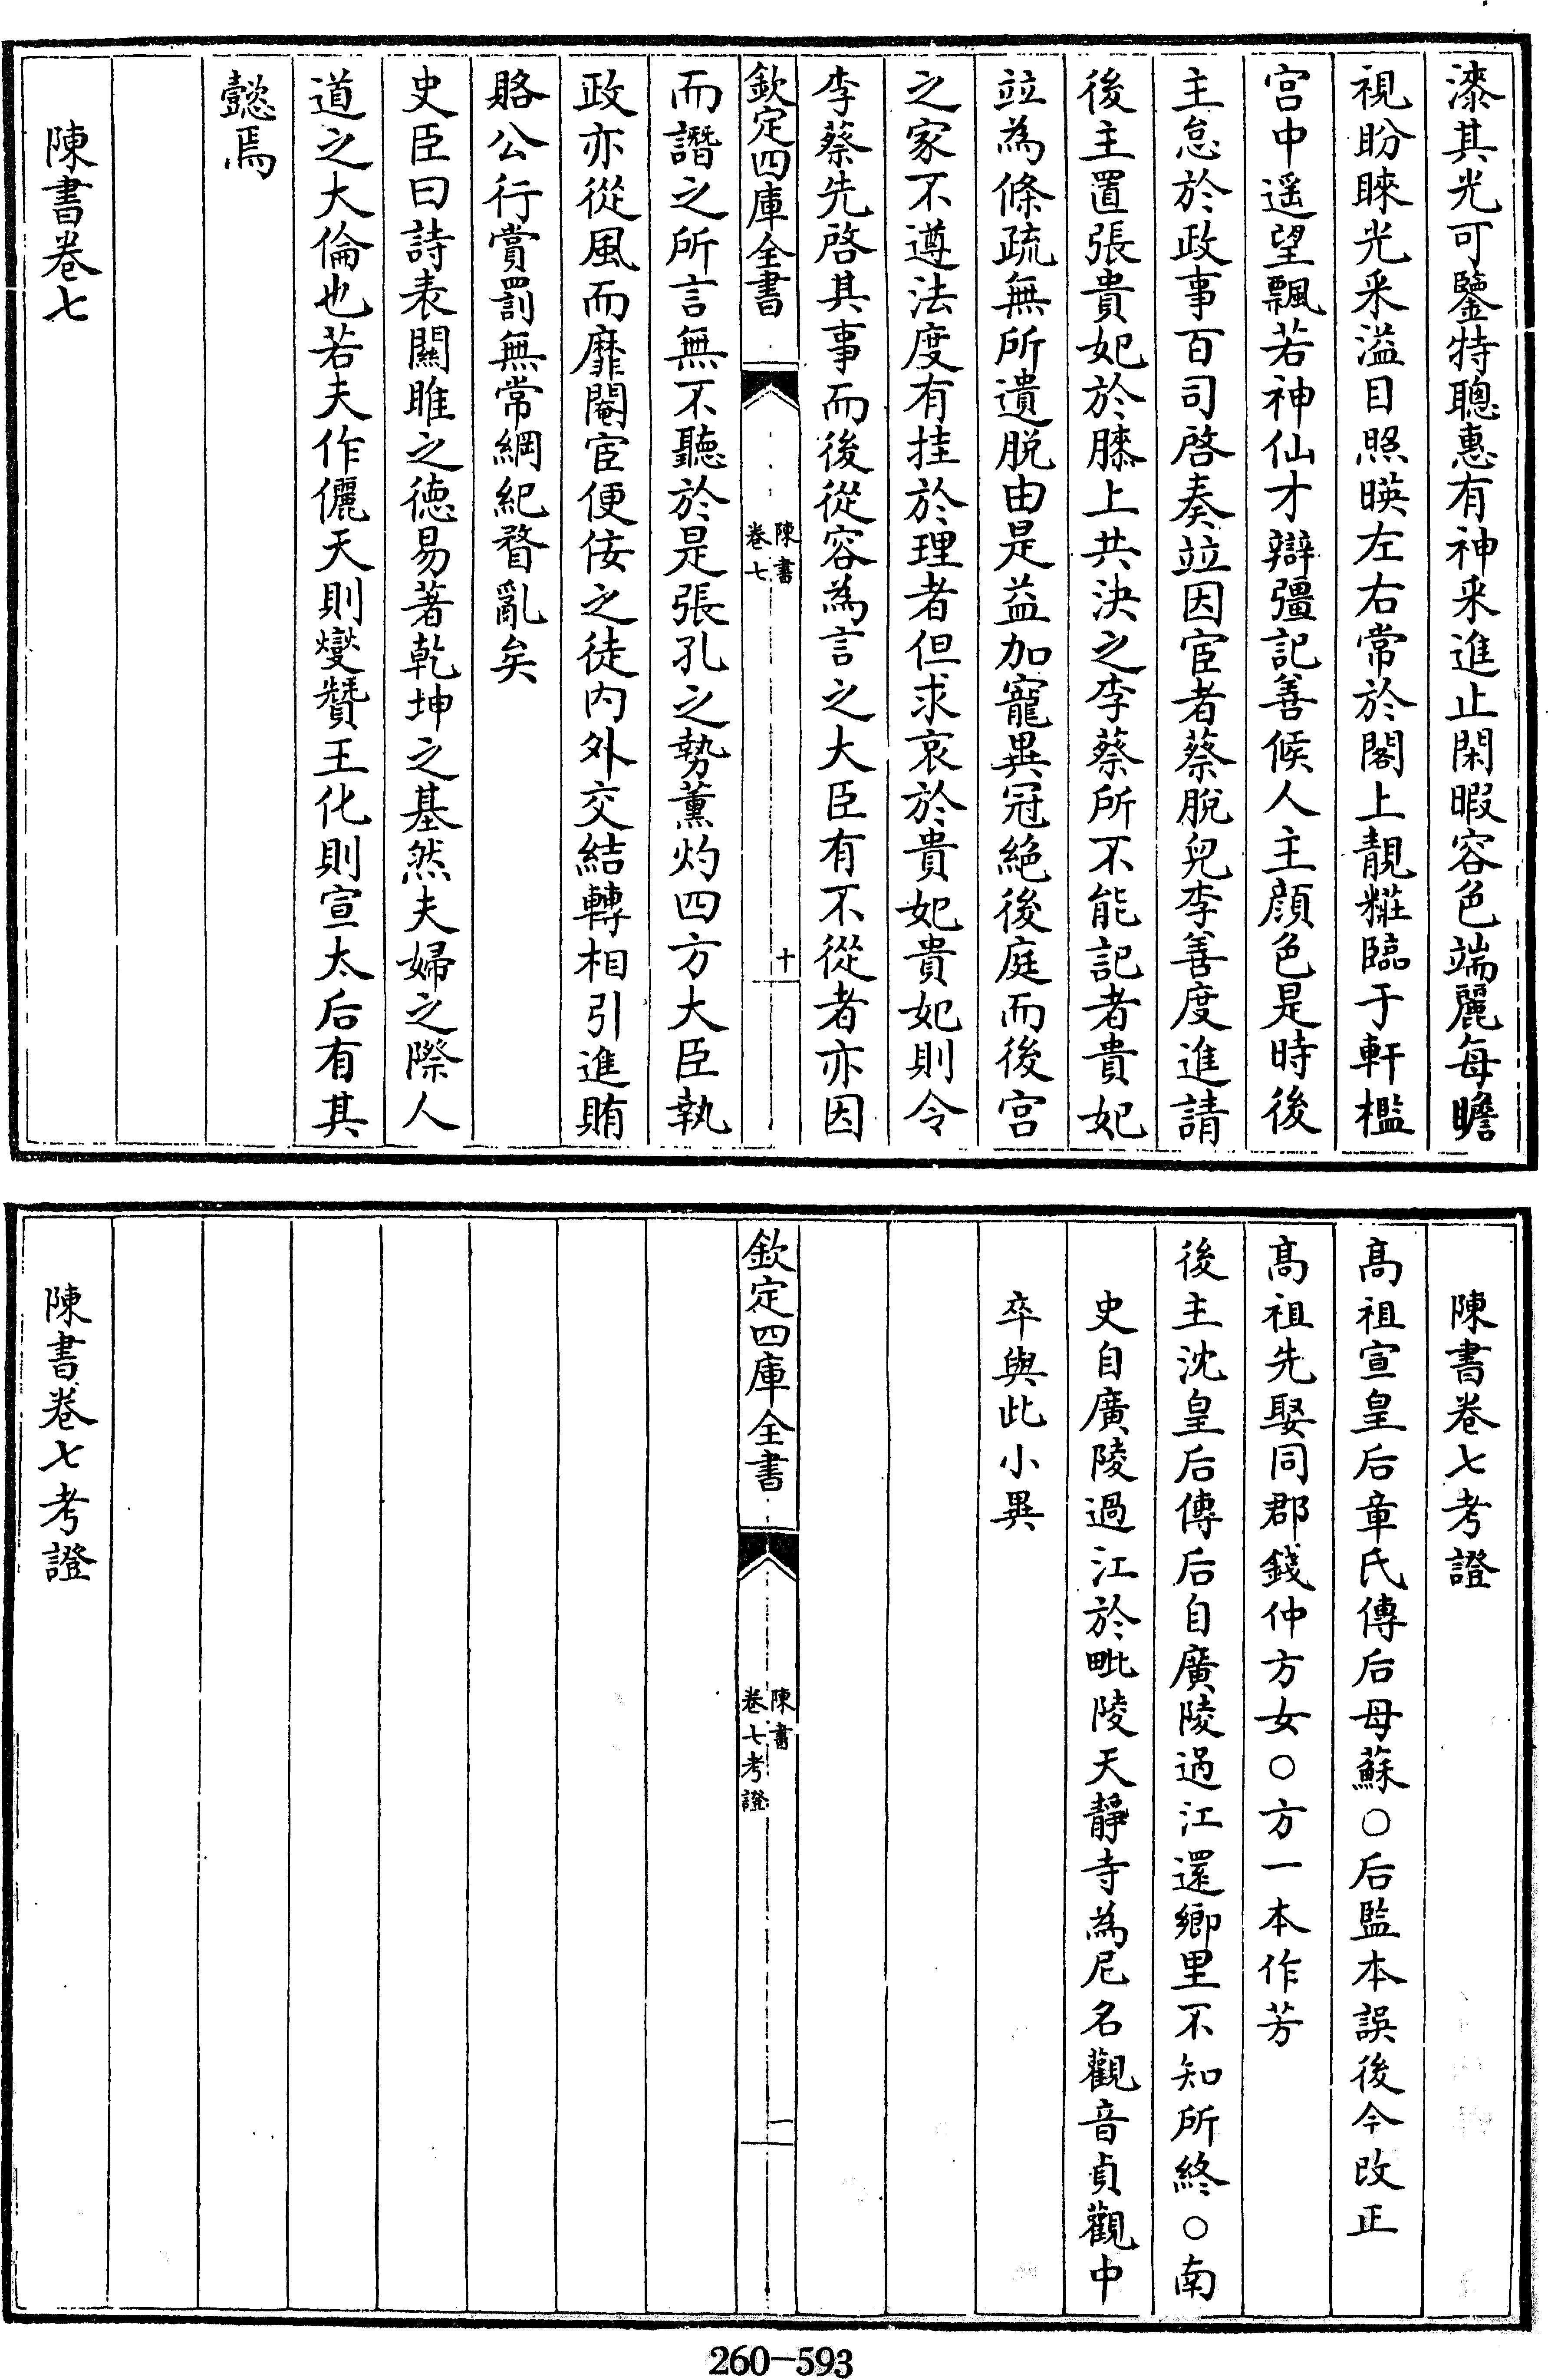 漆其光可鑒特聰惠有神采進止閑暇容色端麗每瞻
視眄睞光采溢目照暎左右常於閣上靚糚臨于軒檻
宫中遥望飄若神仙才辯彊記善候人主顔色是時後
主怠於政事百司啓奏竝因宦者蔡脫兒李善度進請
後主置張貴妃於膝上共決之李蔡所不能記者貴妃
竝為條疏無所遺脱由是益加寵異冠絶後庭而後宫
之家不遵法度有挂於理者但求哀於貴妃貴妃則令
李蔡先啓其事而後從容為言之大臣有不從者亦因
欽定四庫全書
陳書
卷七
十
而譖之所言無不聽於是張孔之勢薰灼四方大臣執
政亦從風而靡閹宦便佞之徒内外交結轉相引進賄
賂公行賞罰無常綱紀瞀亂矣
史臣曰詩表關雎之德易著乾坤之基然夫婦之際人
道之大倫也若夫作儷天則燮贊王化則宣太后有其
懿焉
陳書卷七
陳書卷七考證
高祖宣皇后章氏傳后母蘇○后監本誤後今改正
高祖先娶同郡錢仲方女○方一本作芳
後主沈皇后傳后自廣陵過江還鄉里不知所終○南
史自廣陵過江於毗陵天靜寺為尼名觀音貞觀中
卒與此小異
欽定四庫全書
陳書
卷七考證
一
陳書卷七考證
260-593